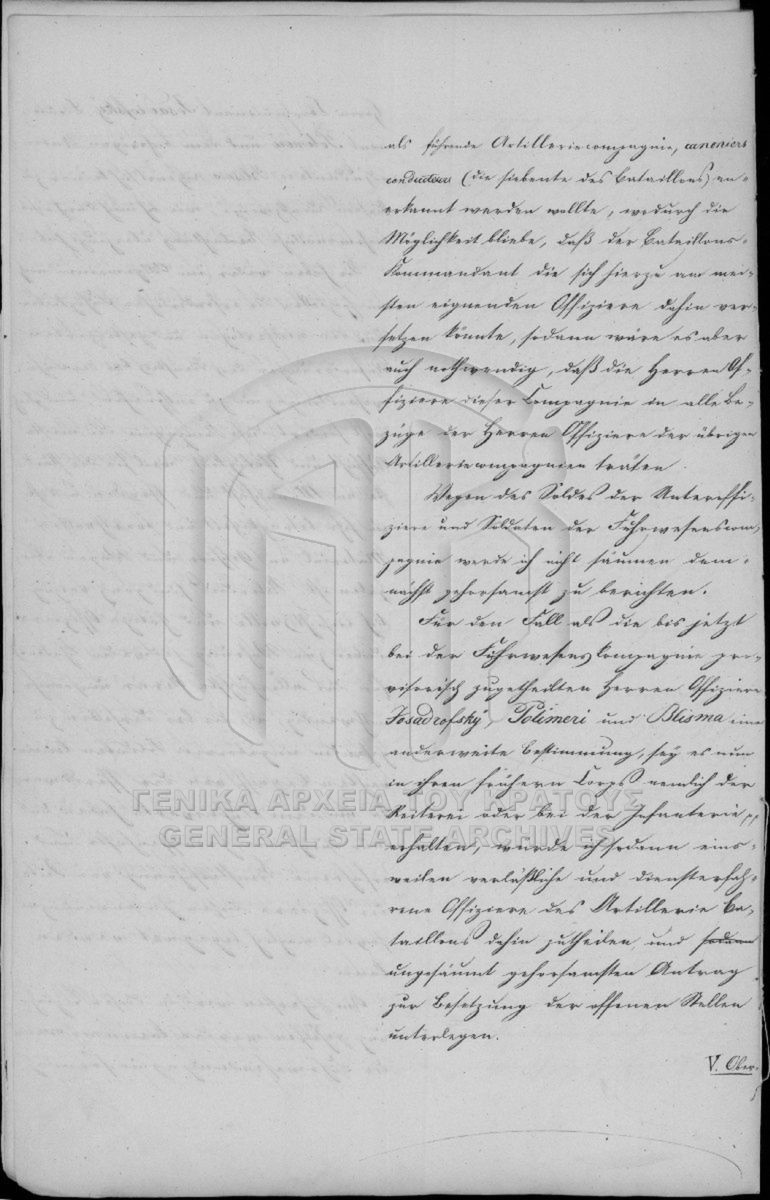 als führende Artilleriecompagnie, canoniers
conducteurs (die siebente des Bataillons) an-
erkannt werden wollte, wodurch die
Möglichkeit bliebe, daß der Bataillons-
Kommandant die sich hierzu am mei-
sten eignenden Offiziere dahin ver-
setzen könnte, sodann wäre es aber
auch nothwendig, daß die Herren Of-
fiziere dieser Compagnie in alle Be-
züge der Herren Offiziere der übrigen
Artilleriecompagnien träten.
Wegen des Soldes der Unteroffi-
ziere und Soldaten der Fuhrwesenscom-
pagnie werde ich nicht säumen dem-
nächst gehorsamst zu berichten.
Für den Fall als die bis jetzt
bei der Fuhrwesens Compagnie pro-
visorisch zugetheilten Herren Offiziere
Josadrofský, Polimeri und Blisma eine
anderweite Bestimmung, sey es nun
in ihren frühern Corps nemlich der
Reiterei oder bei der Infanterie,
erhalten, würde ich sodann eins-
weilen verläßliche und diensterfah-
rene Offiziere des Artillerie Ba-
taillons dahin zutheilen, und sodann
ungesäumt gehorsamsten Antrag
zur Besetzung der offenen Stellen
unterlegen.
V. Ober-
ΓΕΝΙΚΑ ΑΡΧΕΙΑ ΤΟΥ ΚΡΑΤΟΥΣ
GENERAL STATE ARCHIVES